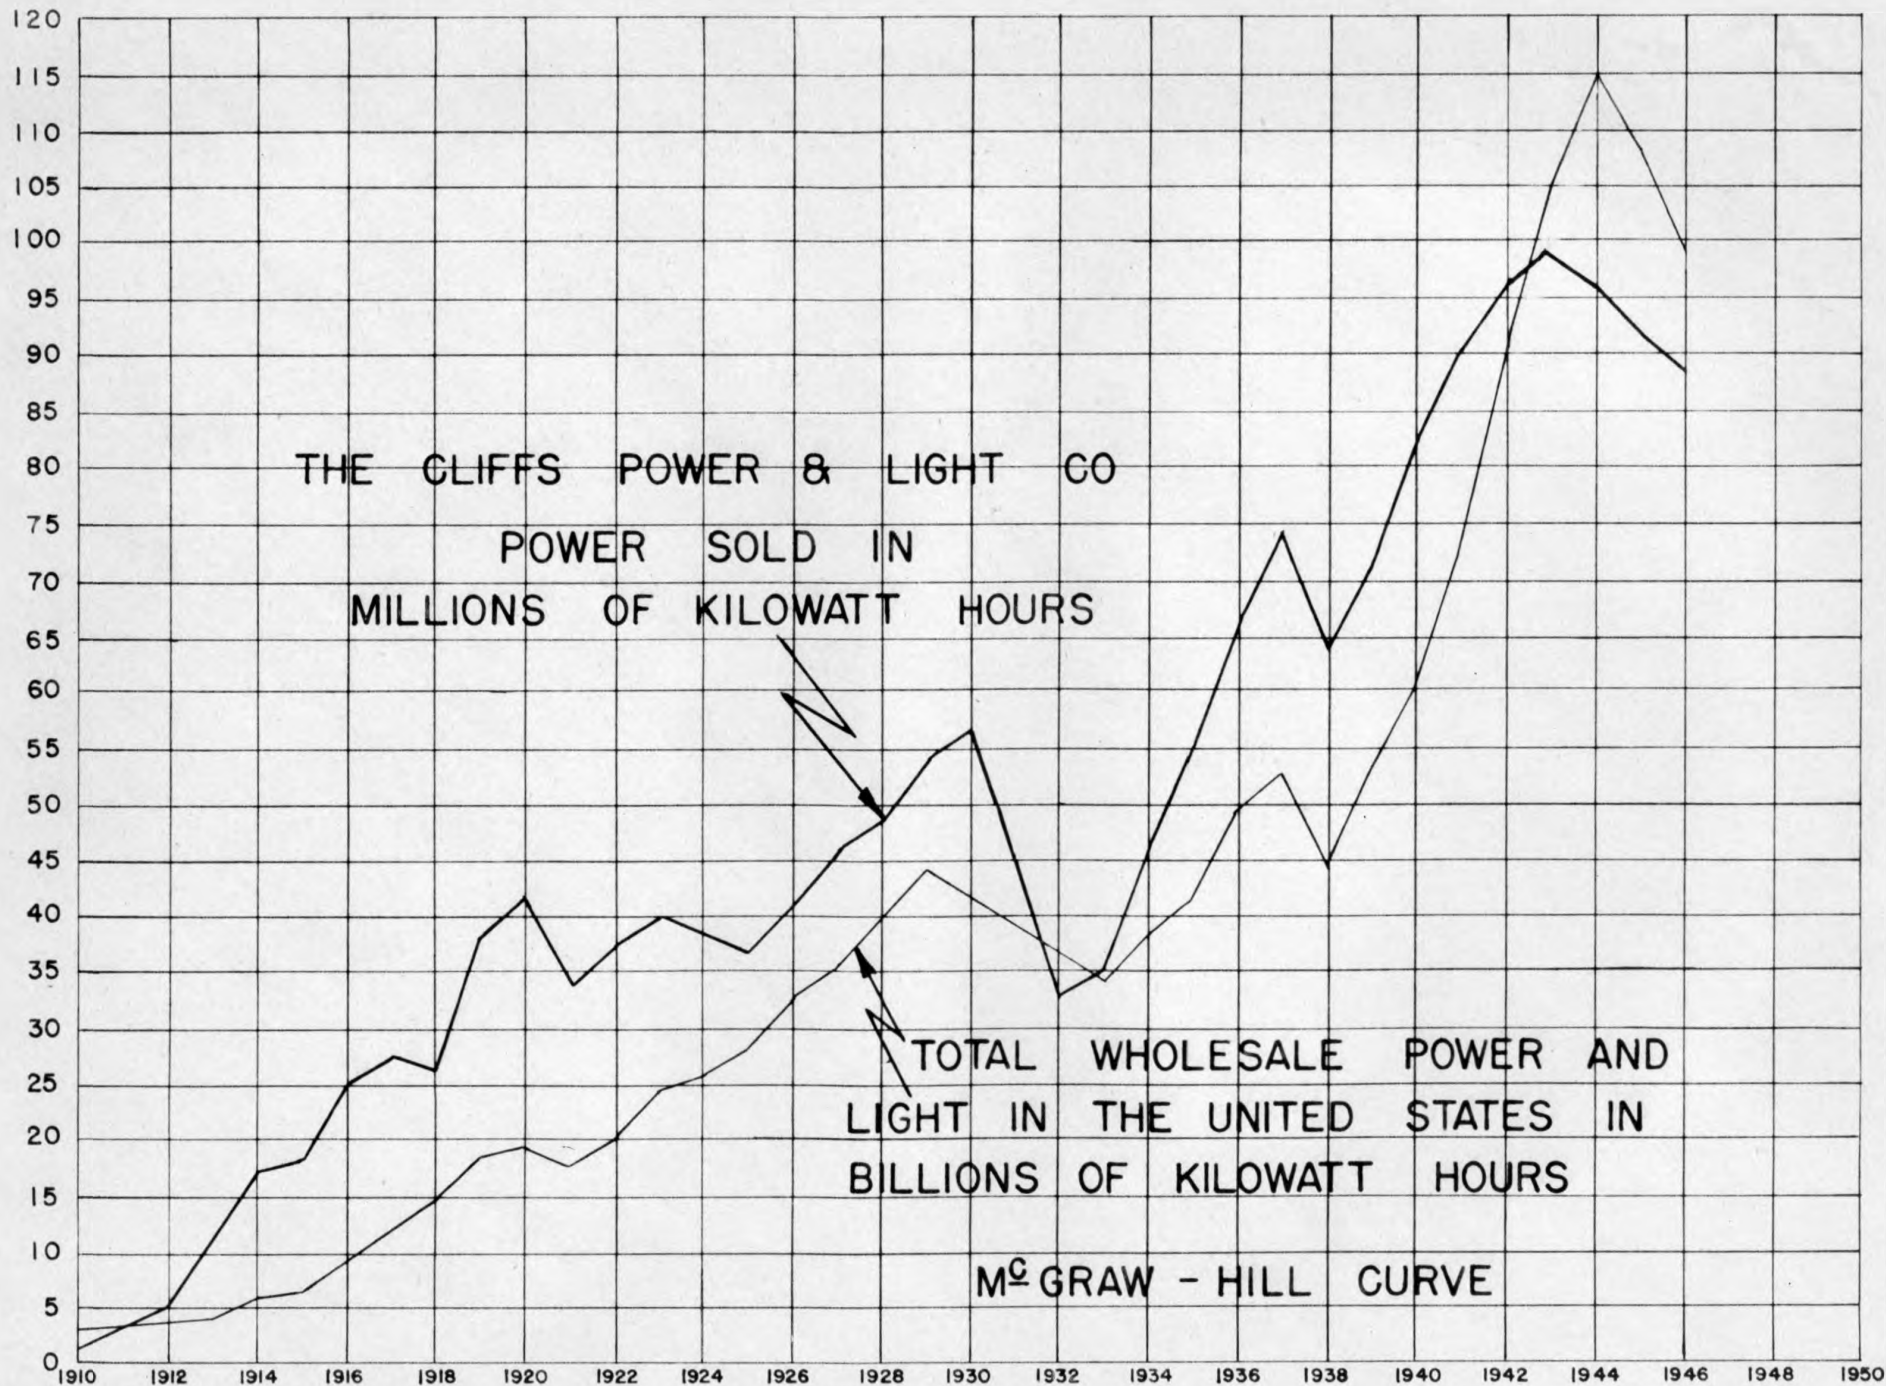 120
115
110
105
100
95
90
85
80
75
70
65
60
55
50
45
40
35
30
25
20
15
10
5
0
THE CLIFFS POWER & LIGHT CO
POWER SOLD IN
MILLIONS OF KILOWATT HOURS
TOTAL WHOLESALE POWER AND
LIGHT IN THE UNITED STATES IN
BILLIONS OF KILOWATT HOURS
McGRAW - HILL CURVE
1910 1912 1914 1916 1918 1920 1922 1924 1926 1928 1930 1932 1934 1936 1938 1940 1942 1944 1946 1948 1950